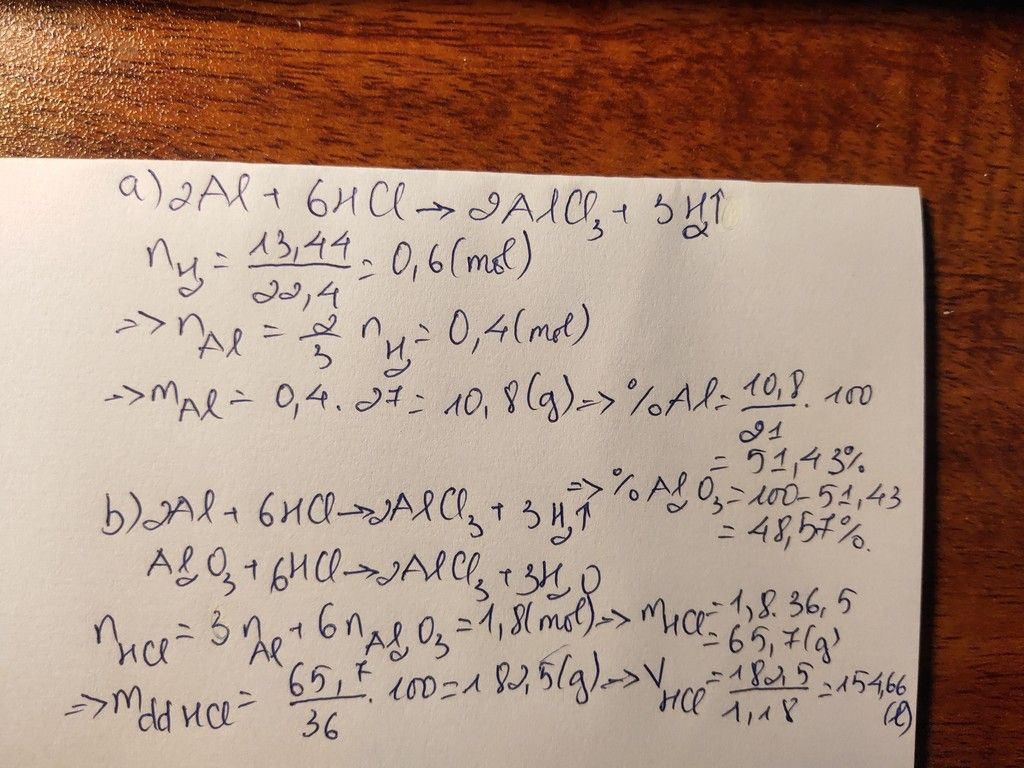 a) 2Al + 6HCl → 2AlCl₃ + 3H₂↑
n_H₂ = 13,44 / 22,4 = 0,6 (mol)
=> n_Al = 2/3 n_H₂ = 0,4 (mol)
=> m_Al = 0,4 . 27 = 10,8 (g) => % Al = 10,8 / 21 . 100
= 51,43%
=> % Al₂O₃ = 100 - 51,43
= 48,57%.
b) 2Al + 6HCl → 2AlCl₃ + 3H₂↑
Al₂O₃ + 6HCl → 2AlCl₃ + 3H₂O
n_HCl = 3 n_Al + 6 n_Al₂O₃ = 1,8 (mol) => m_HCl = 1,8 . 36,5
= 65,7 (g)
=> m_dd HCl = 65,7 / 36 . 100 = 182,5 (g) => V_HCl = 182,5 / 1,18 = 154,66
(l)